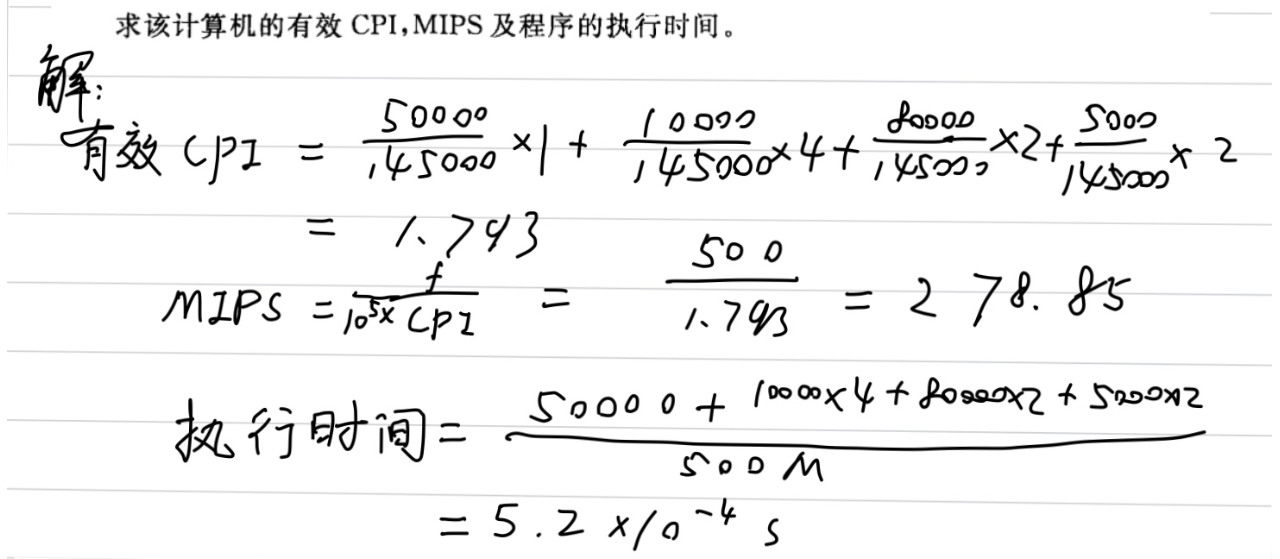 求该计算机的有效 CPI,MIPS 及程序的执行时间。
解:
有效 CPI = 50000/145000 ×1 + 10000/145000 ×4 + 80000/145000 ×2 + 5000/145000 × 2
= 1.793
MIPS = f/10^5× CPI = 500/1.793 = 278.85
执行时间 = 50000 + 10000×4 + 80000×2 + 5000×2/500M
= 5.2 ×10^-4 s